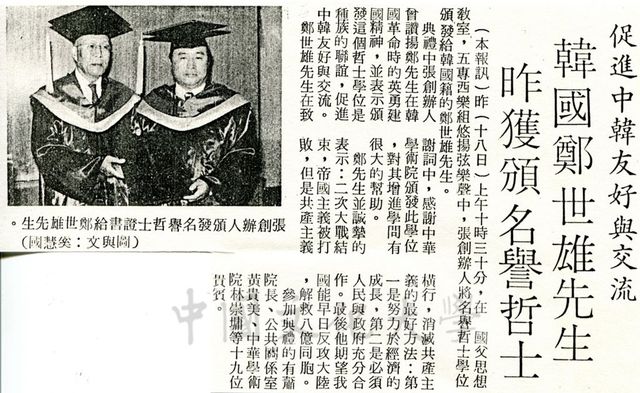 促進中韓友好與交流
韓國鄭世雄先生
昨獲頒名譽哲士
（本報訊）昨（十八日）上午十時三十分，在　國父思想
教室，五專西樂組悠揚弦樂聲中，張創辦人將名譽哲士學位
頒發給韓國籍的鄭世雄先生。
典禮中張創辦人
曾讚揚鄭先生在韓
國革命時的英勇建
國精神，並表示頒
發這個哲士學位是
種族的聯誼，促進
中韓友好與交流。
鄭世雄先生在致
謝詞中，感謝中華
學術院頒發此學位
，對其增進學問有
很大的幫助。
鄭先生並誠摯的
表示：二次大戰結
束，帝國主義被打
敗，但是共產主義
橫行，消滅共產主
義的最好方法：第
一是努力於經濟的
成長，第二是必須
人民與政府充分合
作。最後他期望我
國能早日反攻大陸
，解救八億同胞。
參加典禮的有蕭
院長、公共關係室
黃貴美、中華學術
院林崇墉等十九位
貴賓。
張創辦人頒發名譽哲士證書給鄭世雄先生。
（圖與文：矣慧國）
中國文化大學